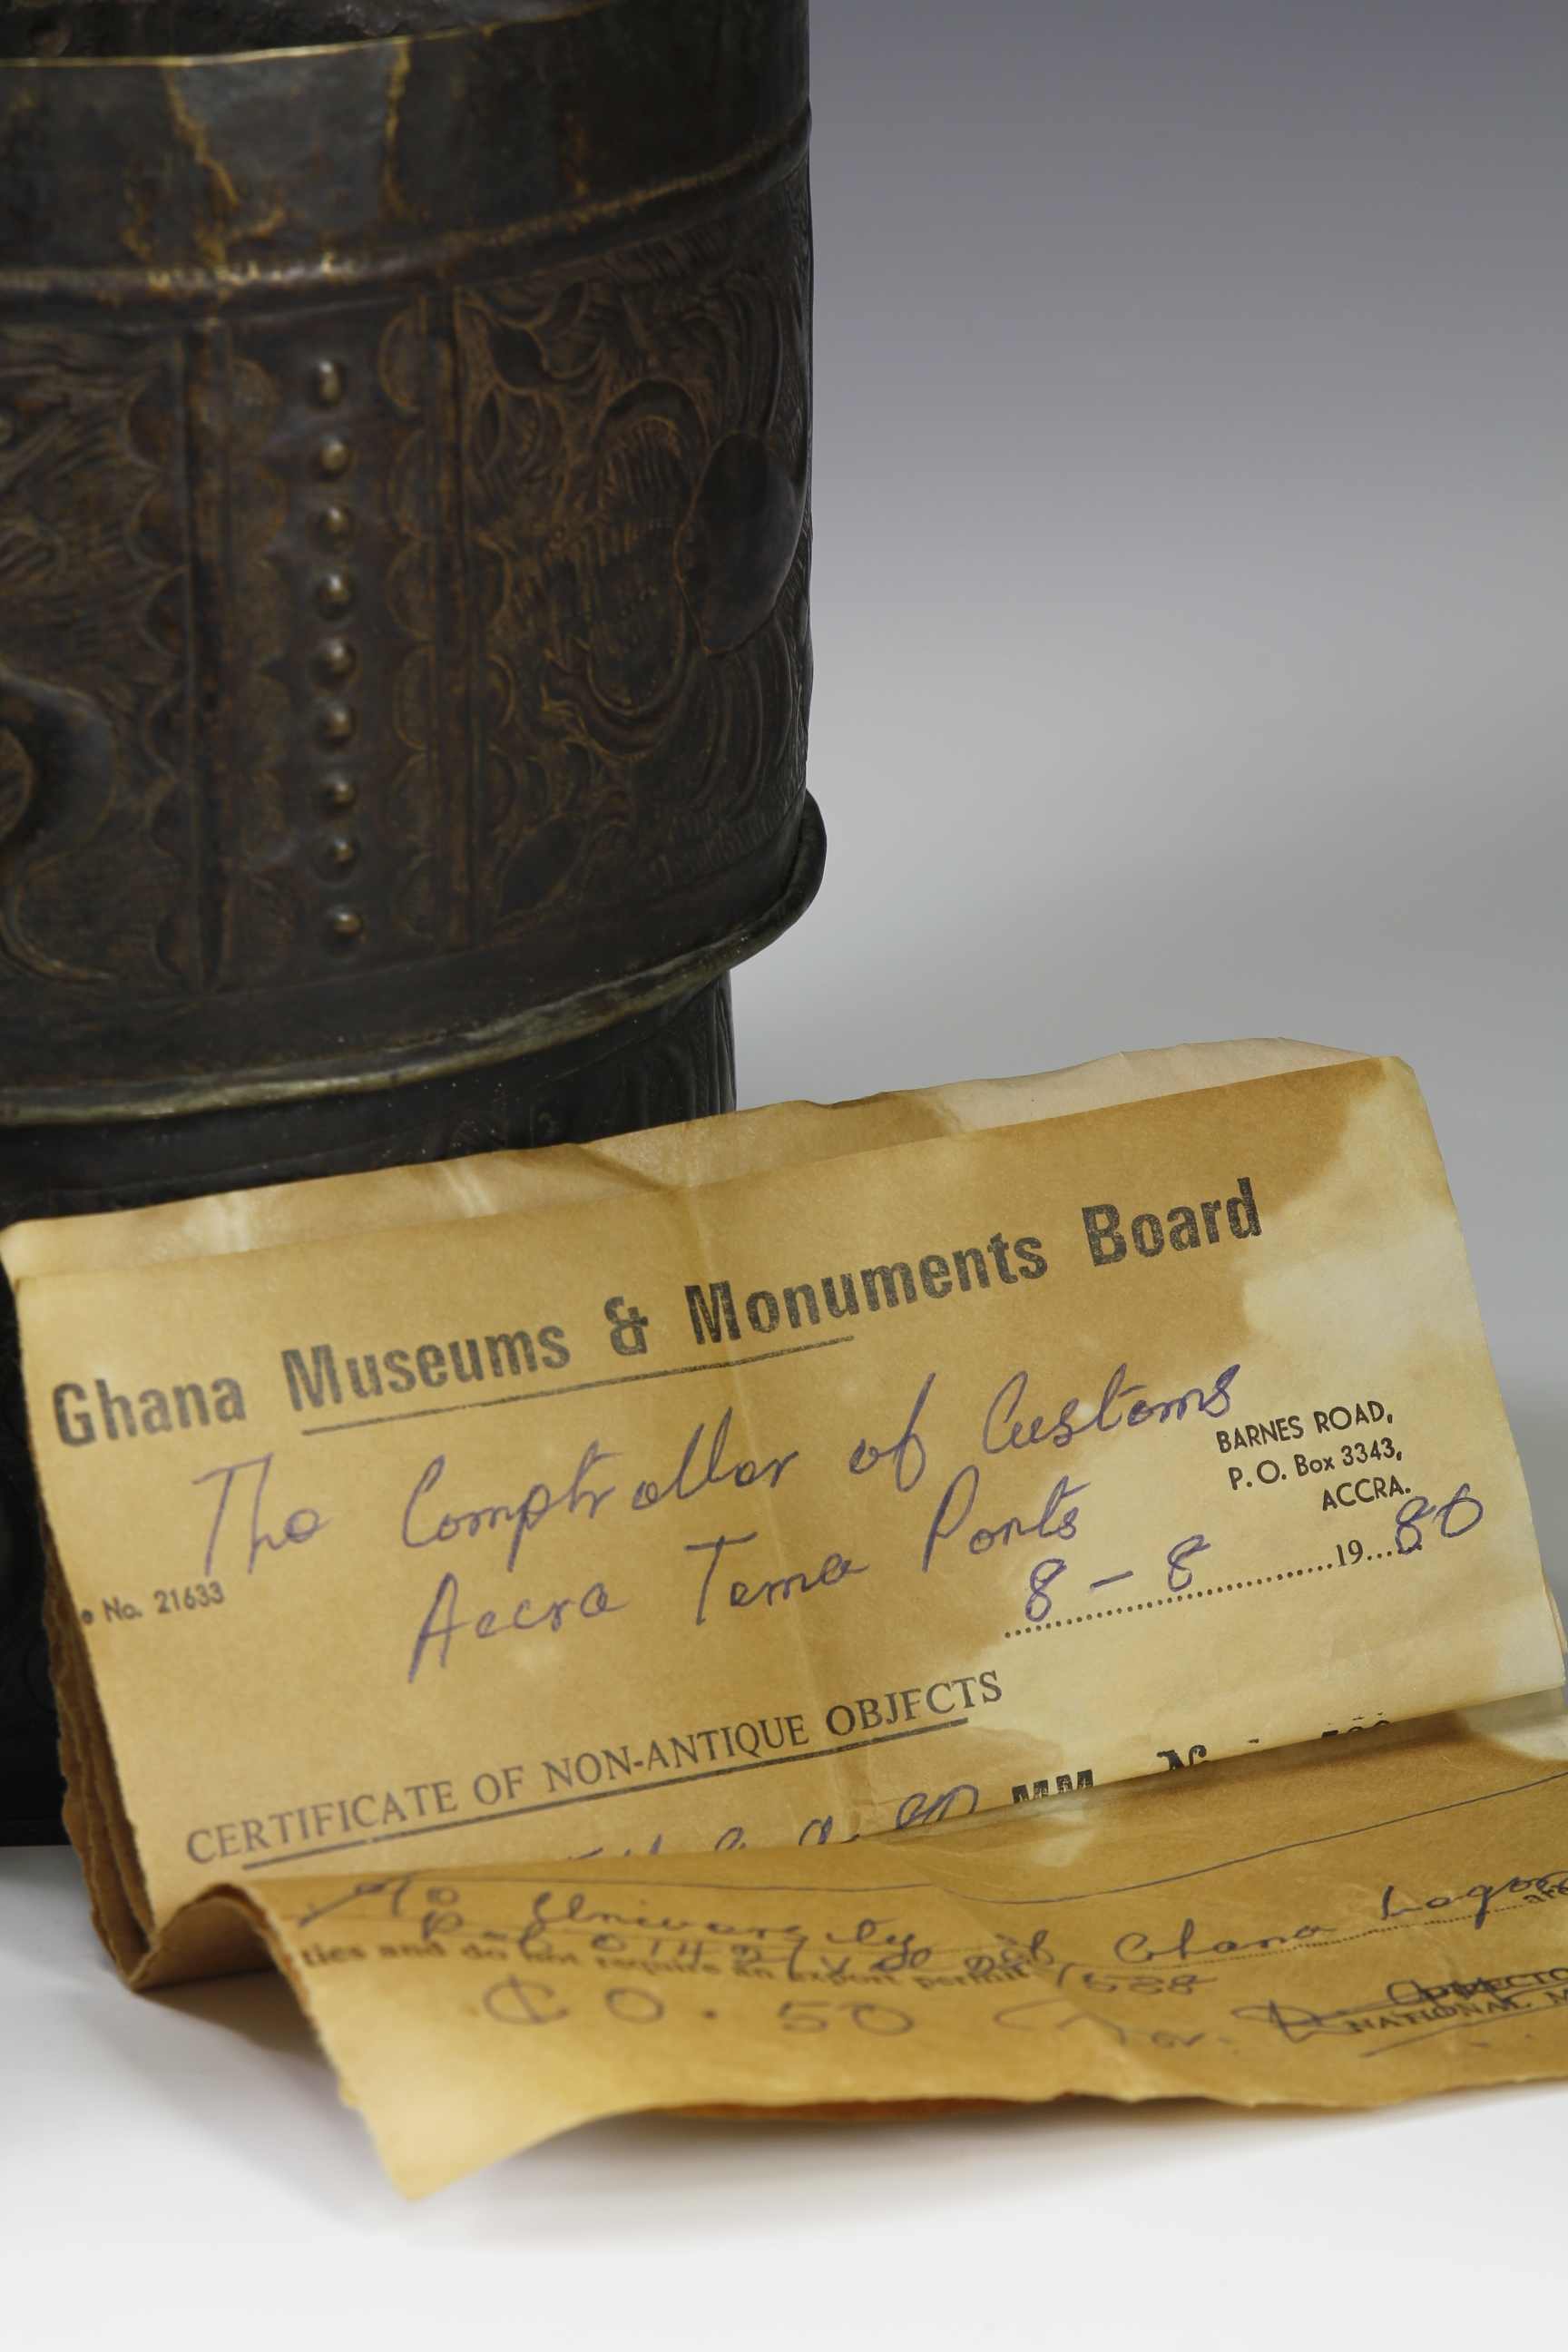 Ghana Museums & Monuments Board
The Comptroller of Customs
BARNES ROAD,
P. O. Box 3343,
ACCRA.
Accra Tema Ports
No. 21633
8 - 8 19...80
CERTIFICATE OF NON-ANTIQUE OBJECTS
MM
University of Ghana Legon
ties and do not require an export permit
₵0.50
For:
NATIONAL M